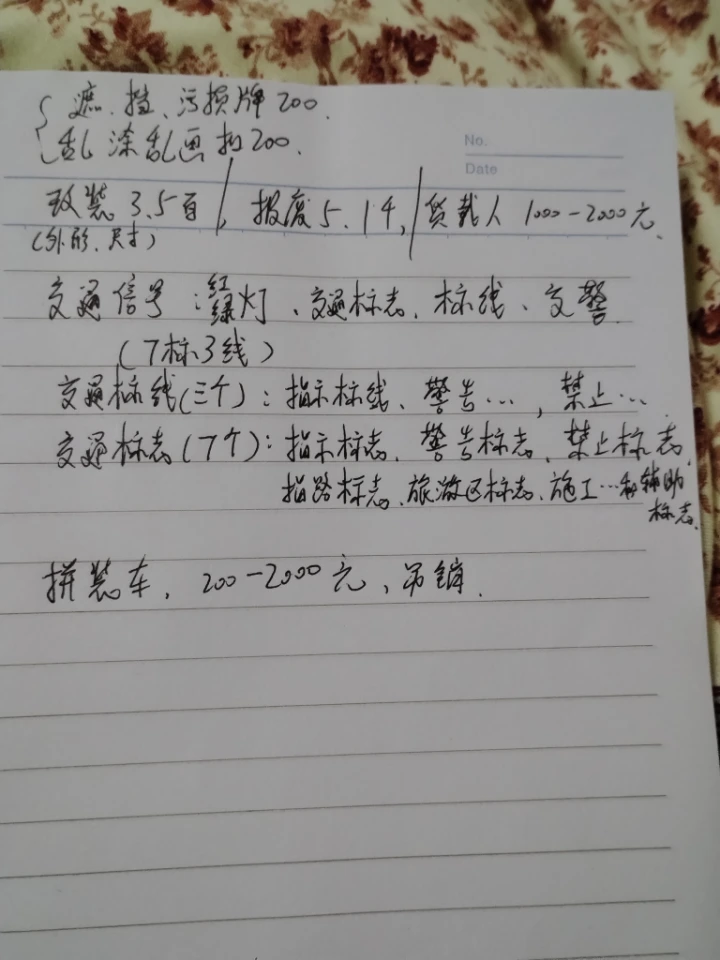 遮、挡、污损牌200.
乱涂乱画扣200.
No.
Date
改装3.5百, 报废5.1千, 货载人1000-2000元.
(外形、尺寸)
交通信号:红绿灯、交通标志、标线、交警.
(7标3线)
交通标线(三个):指示标线、警告…,禁止….
交通标志(7个):指示标志、警告标志、禁止标志,
指路标志、旅游区标志、施工…和辅助
标志.
拼装车、200-2000元、吊销.